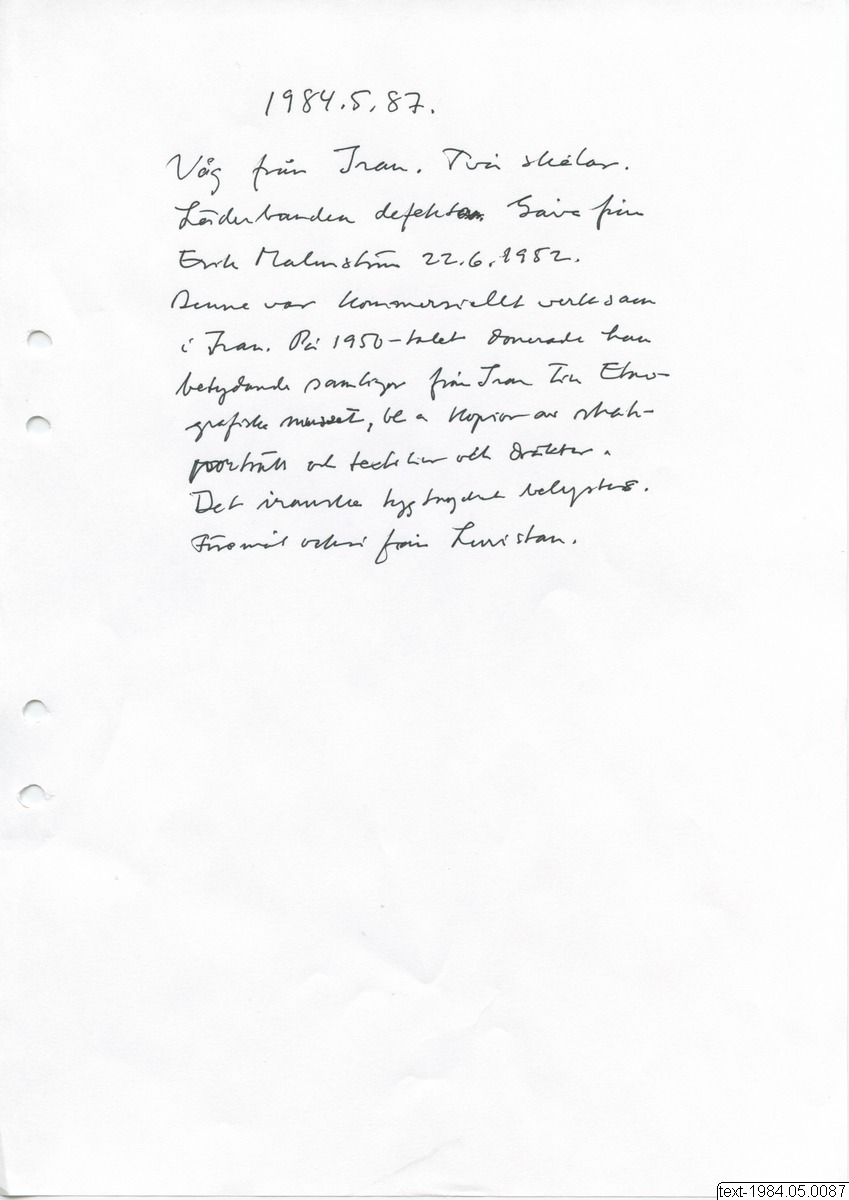 1984.5.87.
Våg från Iran. Två skålar.
Läderbanden defekta. Gåva från
Erik Malmström 22.6.1952.
Denne var kommersiellt verksam
i Iran. På 1950-talet donerade han
betydande samlingar från Iran till Etno-
grafiska museet, bl a kopior av shah-
porträtt och textilier och dräkter.
Det iranska tygtrycket belystes.
Föremål också från Luristan.
text-1984.05.0087